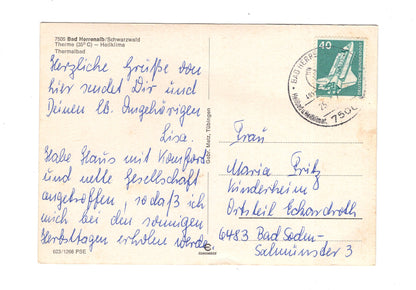 7506 Bad Herrenalb/Schwarzwald
Therme (35° C) – Heilklima
Thermalbad
Herzliche Grüße von
hier sendet Dir und
Deinen lb. Angehörigen
Lisa.
Habe Haus mit Komfort
und nette Gesellschaft
angetroffen, sodaß ich
mich bei den sonnigen
Herbsttagen erholen werde
623/1266 PSE
Gebr. Metz, Tübingen
40
BAD HERRE
7506
Frau
Maria Fritz
Kinderheim
Ortsteil Eckardroth
6483 Bad Soden-
Salmünster 3